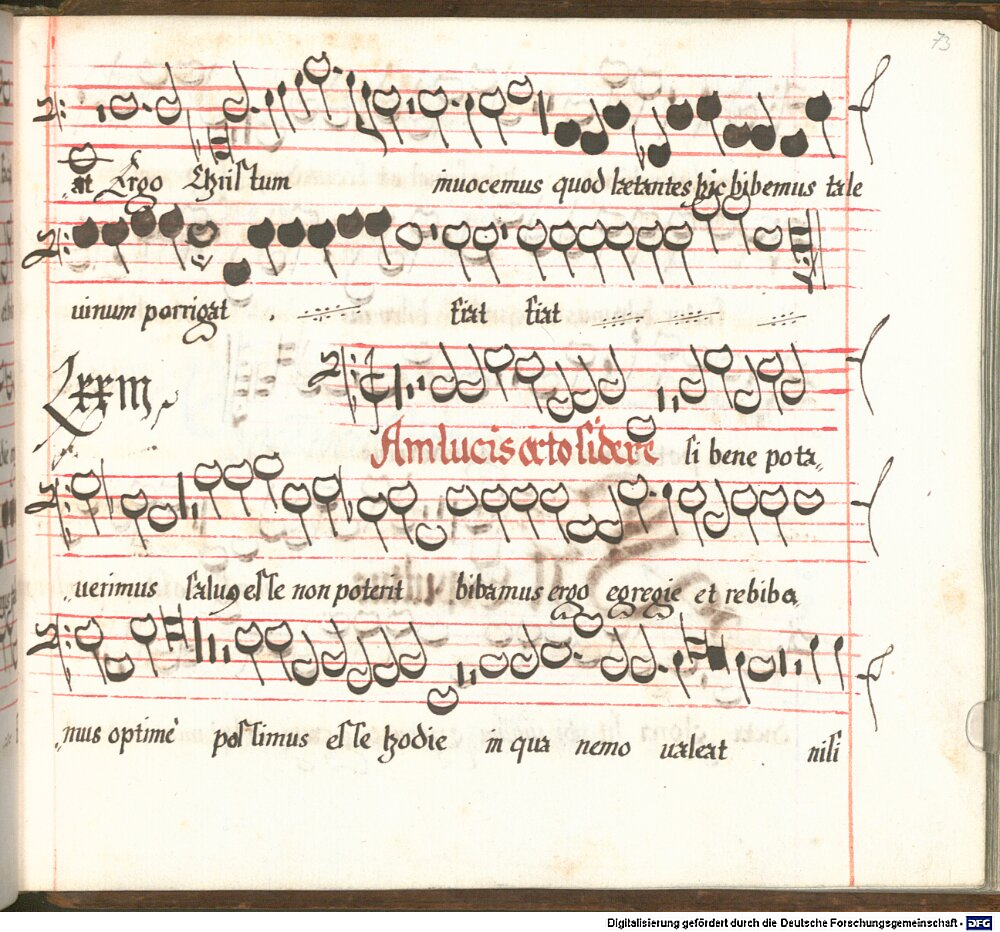 73
at Ergo Christum inuocemus quod lætantes hic bibemus tale
uinum porrigat fiat fiat
LXXIII
Iam lucis orto sidere si bene pota„
„uerimus saluus esse non poterit bibamus ergo egregie et rebiba„
„mus optimè possimus esse hodie in qua nemo ualeat nisi
Digitalisierung gefördert durch die Deutsche Forschungsgemeinschaft - DFG